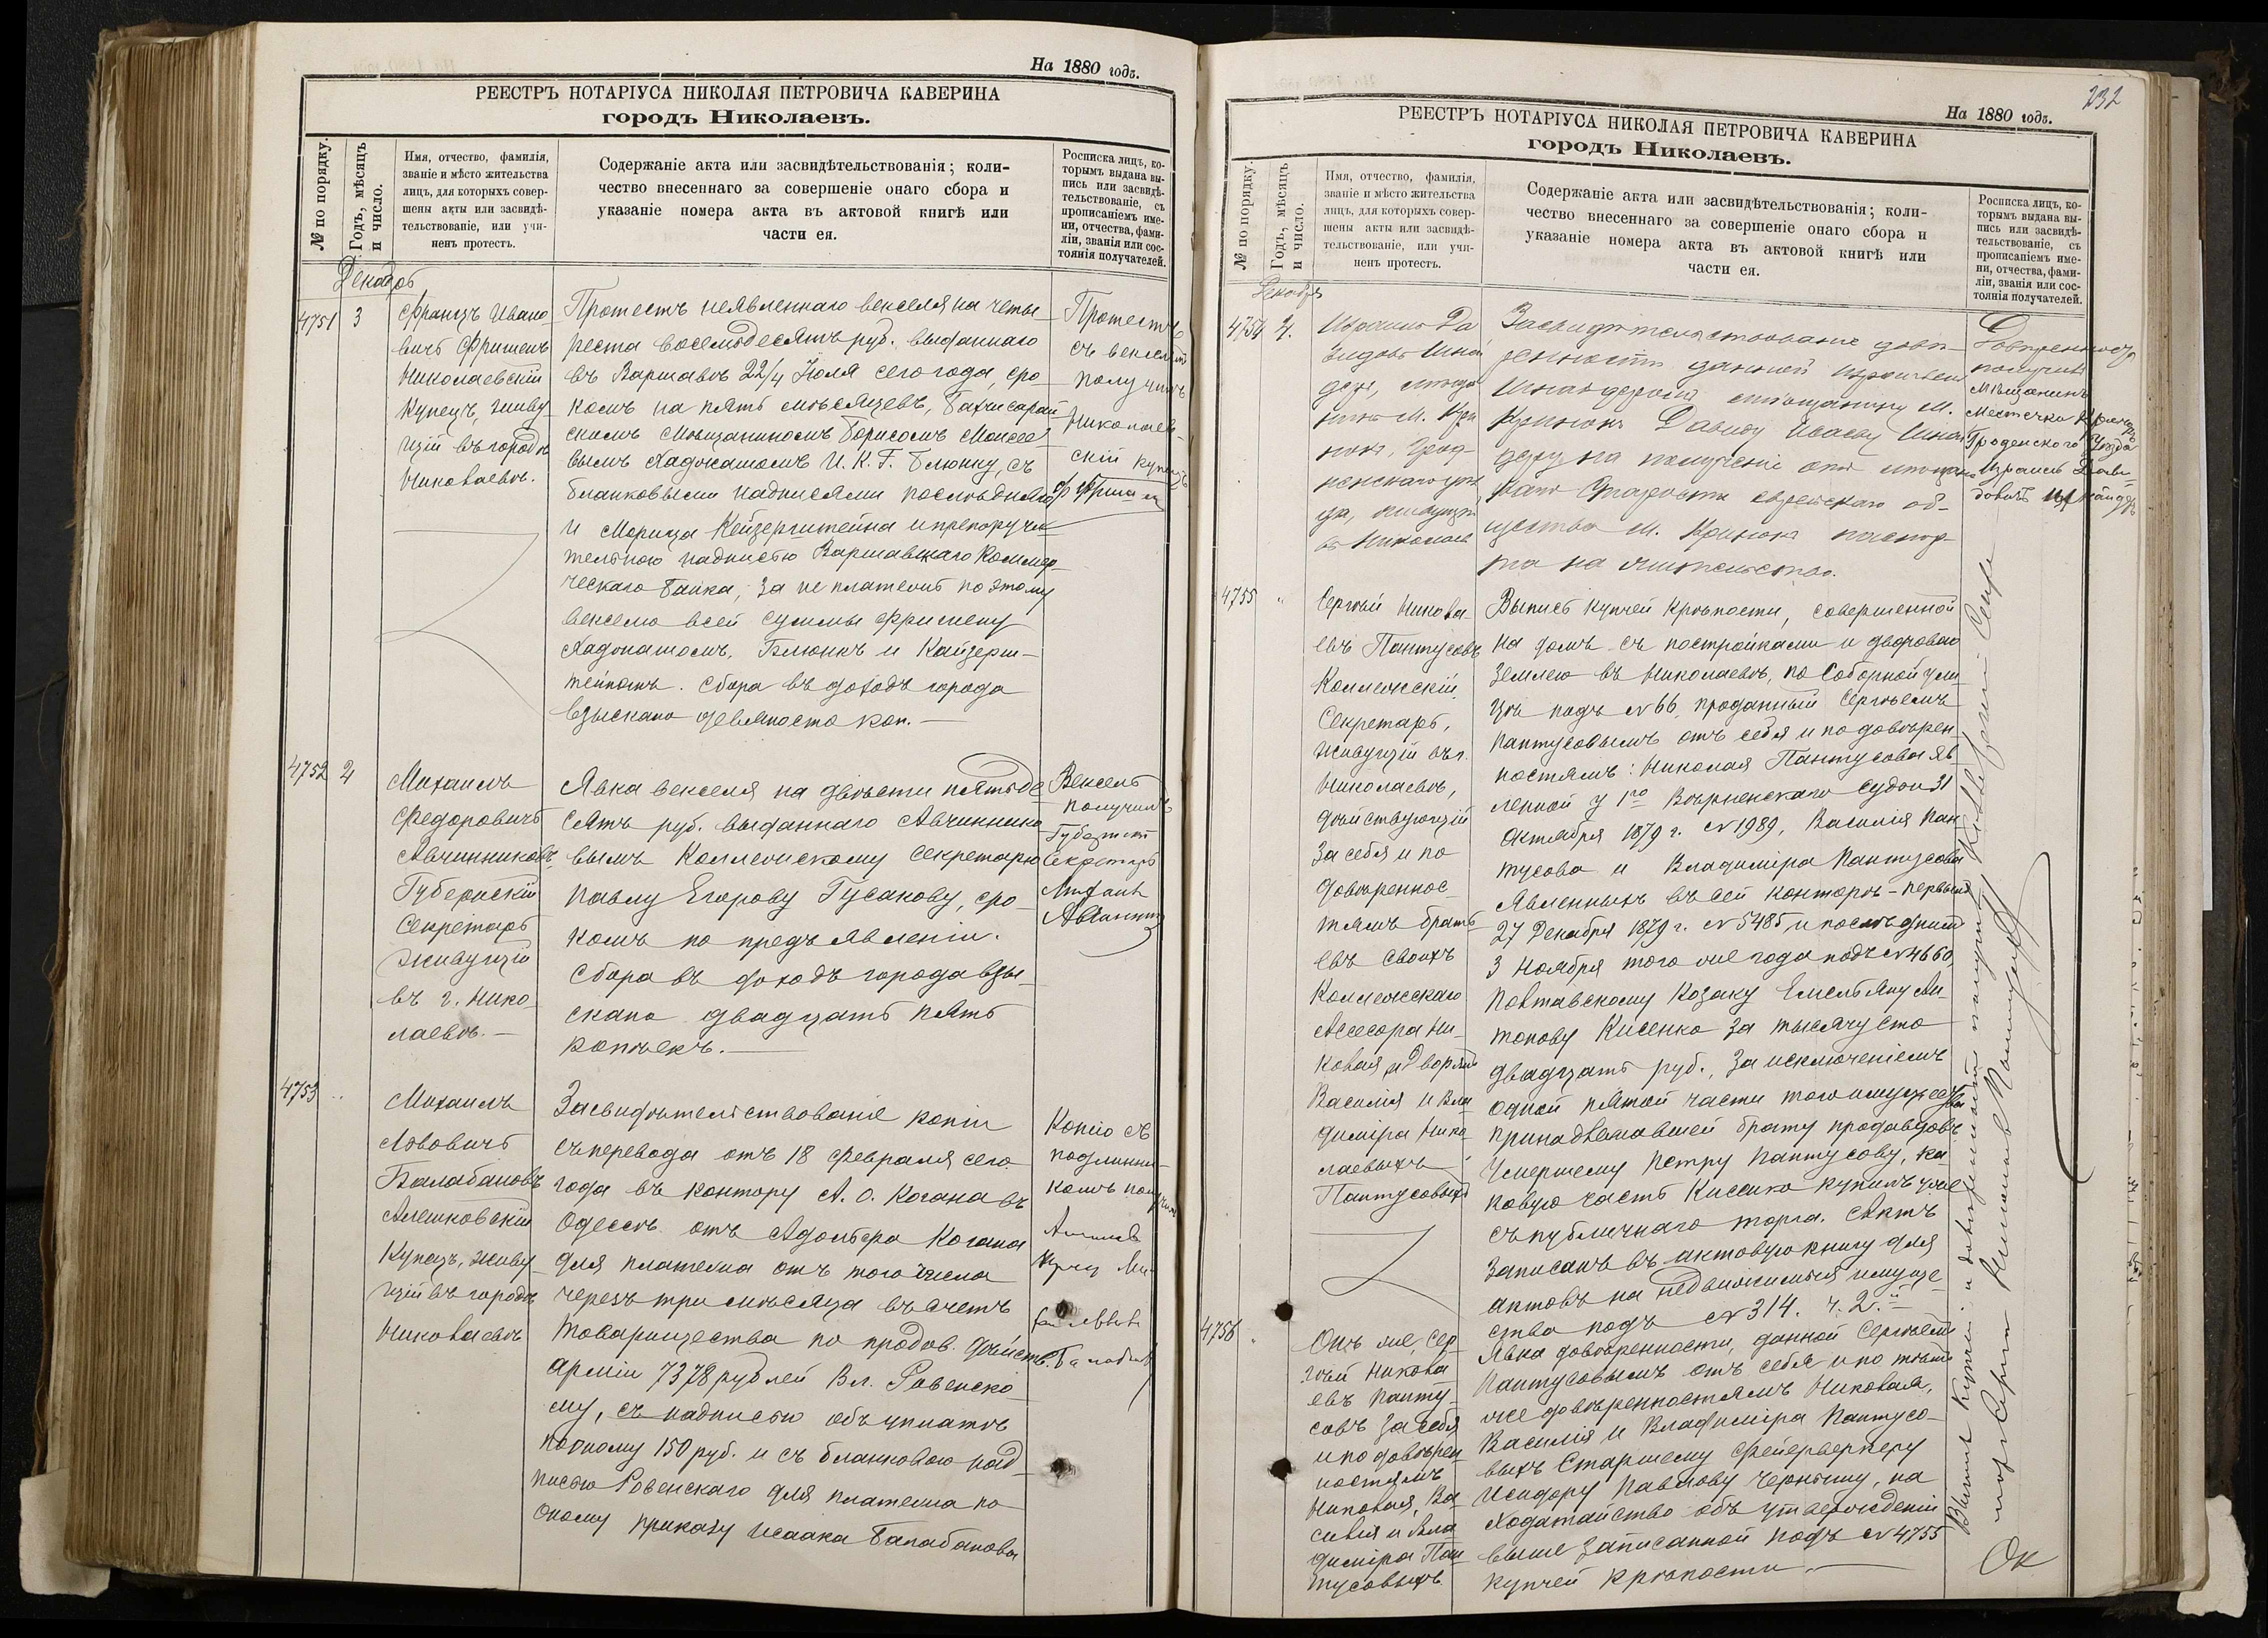 На 1880 годъ.
РЕЕСТРЪ НОТАРІУСА НИКОЛАЯ ПЕТРОВИЧА КАВЕРИНА
городъ Николаевъ.
№ по порядку.
Годъ, мѣсяцъ
и число.
Имя, отчество, фамилія,
званіе и мѣсто жительства
лицъ, для которыхъ совер-
шены акты или засвидѣ-
тельствованіе, или учи-
ненъ протестъ.
Содержаніе акта или засвидѣтельствованія; коли-
чество внесеннаго за совершеніе онаго сбора и
указаніе номера акта въ актовой книгѣ или
части ея.
Росписка лицъ, ко-
торымъ выдана вы-
пись или засвидѣ-
тельствованіе, съ
прописаніемъ име-
ни, отчества, фами-
ліи, званія или сос-
тоянія получателей.
Декабрь
4751
3
Францъ Ивано-
вичъ Фришенъ
Николаевскій
Купецъ, живу-
щій въ городѣ
Николаевѣ.
Протестъ неявленнаго векселя на четы-
реста восемьдесятъ руб. выданнаго
въ Варшавѣ 22/4 Іюля сего года, сро-
комъ на пять мѣсяцевъ, Бахчисарай-
скимъ Мѣщаниномъ Борисомъ Моисее-
вымъ Хадокашомъ И. К. Г. Блюнку, съ
бланковыми надписями послѣдняго
и Морица Кейзерштейна и препоручи-
тельною надписью Варшавскаго Коммер-
ческаго Банка, за не платежъ по этому
векселю всей суммы Фришену
Хадокашомъ, Блюнкъ и Кайзерш-
тейномъ. Сбора въ доходъ города
взыскано девяносто коп.—
Протестъ
съ векселемъ
получилъ
Николаев-
скій купецъ
Ф Фришен
4752
4
Михаилъ
Федоровичъ
Авчинниковъ,
Губернскій
Секретарь
живущій
въ г. Нико-
лаевѣ.—
Явка векселя на двѣсти пятьде-
сятъ руб. выданнаго Авчиннико-
вымъ Коллежскому Секретарю
Павлу Егорову Гусакову, сро-
комъ по предъявленіи.
Сбора въ доходъ города взы-
скано двадцать пять
копѣекъ.—
Вексель
получилъ
Губернскій
Секретарь
Михаилъ
4753
"
Михаилъ
Львовичъ
Балабановъ
Алешковскій
Купецъ, живу-
щій въ городѣ
Николаевѣ
Засвидѣтельствованіе копіи
съ перевода отъ 18 Февраля сего
года въ контору А. О. Когана въ
Одессѣ отъ Адольфа Когана
для платежа отъ того числа
черезъ три мѣсяца въ счетъ
Товарищества по продов. дѣйств.
арміи 7378 рублей Вл. Ровенско-
му, съ надписью объ уплатѣ
по оному 150 руб. и съ бланковою над-
писью Ровенскаго для платежа по
оному приказу Исаака Балабанова
Копію съ
подлинни-
комъ получилъ
На 1880 годъ.
232
РЕЕСТРЪ НОТАРІУСА НИКОЛАЯ ПЕТРОВИЧА КАВЕРИНА
городъ Николаевъ.
№ по порядку.
Годъ, мѣсяцъ
и число.
Имя, отчество, фамилія,
званіе и мѣсто жительства
лицъ, для которыхъ совер-
шены акты или засвидѣ-
тельствованіе, или учи-
ненъ протестъ.
Содержаніе акта или засвидѣтельствованія; коли-
чество внесеннаго за совершеніе онаго сбора и
указаніе номера акта въ актовой книгѣ или
части ея.
Росписка лицъ, ко-
торымъ выдана вы-
пись или засвидѣ-
тельствованіе, съ
прописаніемъ име-
ни, отчества, фами-
ліи, званія или сос-
тоянія получателей.
Декабря
4754
4.
Израиль Да-
видовъ Инан-
деръ, мѣща-
нинъ М. Кри-
нокъ, Грод-
ненскаго уѣз-
да, живущій
въ Николаевѣ
Засвидѣтельствованіе довѣ-
ренности данной Израилемъ
Инандеромъ мѣщанину М.
Кринокъ Давиду Исаеву Инан-
деру на полученіе отъ мѣщан-
скаго Старосты еврейскаго об-
щества М. Кринокъ паспор-
та на жительство.
Довѣренность
получилъ
Мѣщанинъ
Местечка Кринокъ
Гроденского Уезда
Израиль Дави-
довичъ
4755
"
Сергѣй Никола-
евъ Пантусовъ
Коллежскій
Секретарь,
живущій въ г.
Николаевѣ,
дѣйствующій
за себя и по
довѣреннос-
тямъ брать-
евъ своихъ
Коллежскаго
Асессора Ни-
колая, и Дворянъ
Василія и Вла-
диміра Нико-
лаевыхъ
Пантусовыхъ
Выпись купчей крѣпости, совершенной
на домъ съ постройками и дворовою
землею въ Николаевѣ, по Соборной ули-
цѣ подъ № 66, проданный Сергѣемъ
Пантусовымъ отъ себя и по довѣрен-
ностямъ: Николая Пантусова яв-
ленной у 1го Вѣрненскаго Судьи 31
Октября 1879 г. № 1989, Василія Пан-
тусова и Владиміра Пантусова
явленныхъ въ сей конторѣ - первый
27 Декабря 1879 г. № 5485, и послѣдній
3 Ноября того же года подъ № 4660,
Полтавскому Козаку Емельяну Ан-
тонову Кисенко за тысячу сто
двадцать руб., за исключеніемъ
одной пятой части того имущества
принадлежавшей брату продавцовъ
Умершему Петру Пантусову, ка-
ковую часть Кисенко купилъ уже
съ публичнаго торга. Актъ
записанъ въ актовую книгу для
актовъ на недвижимыя имуще-
ства подъ № 314. ч. 2.
4756
"
Онъ же, Сер-
гѣй Никола-
евъ Панту-
совъ за себя
и по довѣрен-
ностямъ
Николая, Ва-
силія и Вла-
диміра Пан-
тусовыхъ
Явка довѣренности, данной Сергѣемъ
Пантусовымъ отъ себя и по тѣмъ
же довѣренностямъ Николая,
Василія и Владиміра Пантусо-
выхъ Старшему Фейерверкеру
Исидору Павлову Чернышу, на
ходатайство объ утвержденіи
выше записанной подъ № 4755
купчей крѣпости.—
Выпись Купчей и довѣренность получилъ